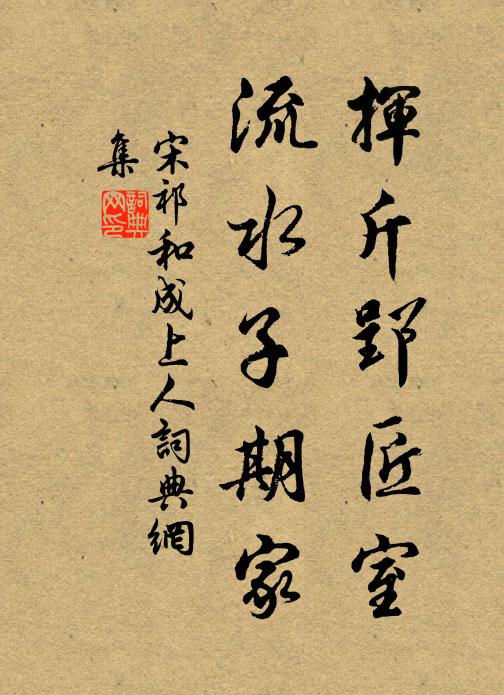 揮斤郢匠室
流水子期家
宋祁和成上人詞典網
集
詞典网印